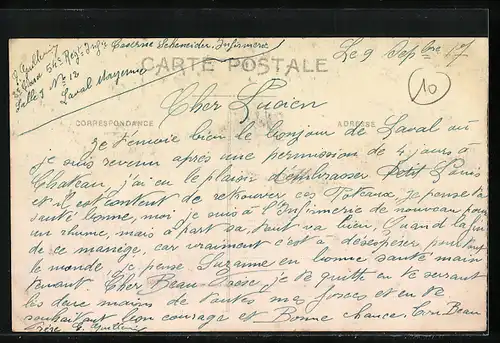 Caserne Schneider, Infirmerie
Le 9 Sepbre 17
54e Regt Infie
Salle 7 No 12
Laval Mayenne
CARTE POSTALE
10
Cher Lucien
CORRESPONDANCE
ADRESSE
je t'envoie bien le bonjour de Laval où
je suis revenu après une permission de 4 jours à
Chateau, j'ai eu le plaisir d'embrasser petit Louis
et il est content de retrouver ces Poteaux. Je pense ta
santé bonne, moi je suis à l'Infirmerie de nouveau pour
un rhume, mais à part sa, tout va bien. Quand la fin
de ce manège, car vraiment c'est à desesperer pour tout
le monde, je pense Suzanne en bonne santé main
tenant. Cher Beau-Frère, je te quitte en te serrant
les deux mains de toutes mes forces et en te
souhaitant bon courage et Bonne chance. Ton Beau
frère E.